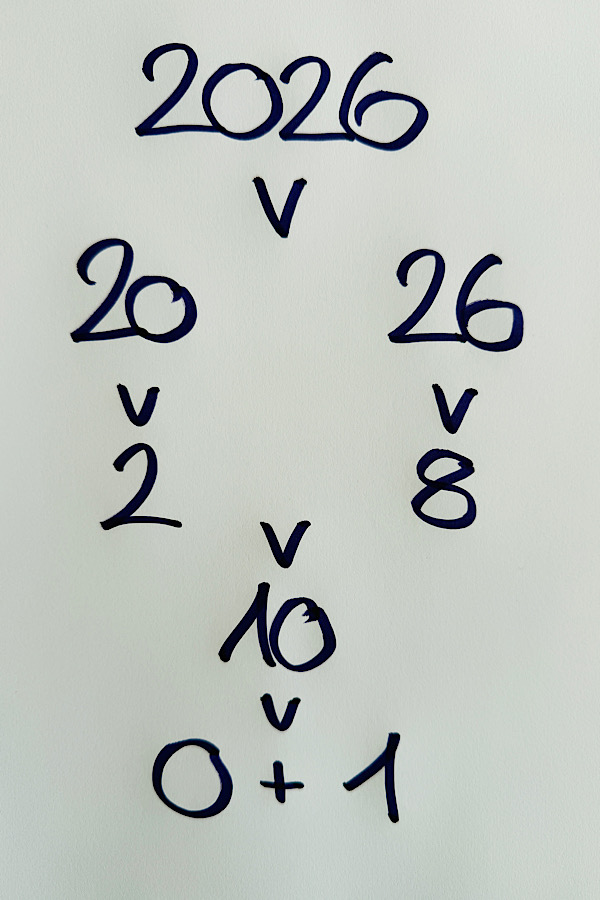 2026
V
20 26
V V
2 8
V
10
V
0 + 1